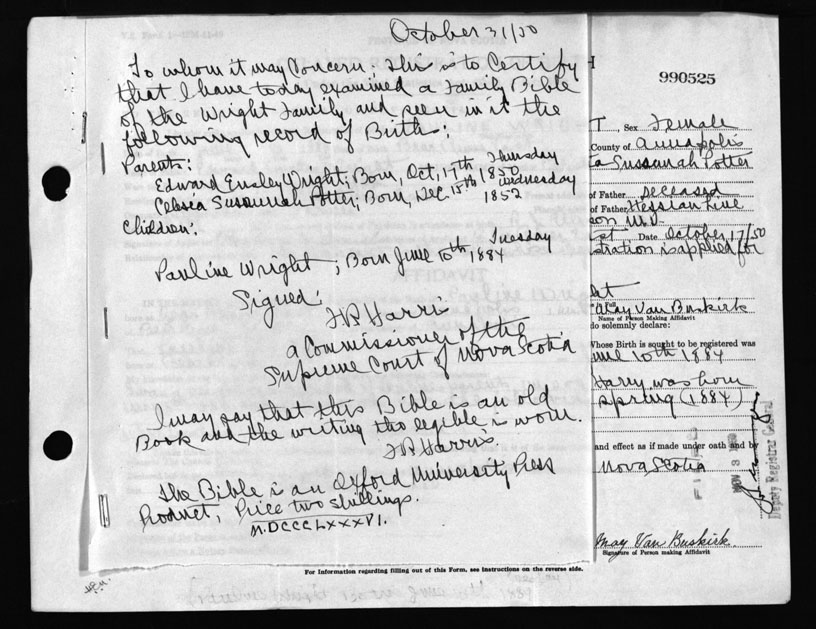 October 31/50
To whom it may Concern; This is to Certify
that I have today examined a Family Bible
of the Wright Family and seen in it the
following record of Birth:
Parents:
Edward Ensley Wright; Born, Oct, 17th 1850 Thursday
Celesia Susannah Potter; Born, Dec. 15th 1852 Wednesday
Children:
Pauline Wright; Born June 10th 1884 Tuesday
Signed:
H R Harris
a Commissioner of the
Supreme Court of Nova Scotia
I may say that this Bible is an old
Book and the writing tho legible is worn.
H R Harris.
The Bible is an Oxford University Press
Product, Price two shillings.
M.DCCCLXXXVI.
For Information regarding filling out of this Form, see instructions on the reverse side.
H
990525
T, Sex Female
County of Annapolis
Susannah Potter
of Father deceased
of Father Hessian Line
son
Date October 17/50
stration is applied for
May Van Buskirk
Full
Name of Person Making Affidavit
do solemnly declare:
Whose Birth is sought to be registered was
June 10th 1884
Harry was born
spring (1884)
and effect as if made under oath and by
Nova Scotia
FILED
NOV 3 1950
Deputy Registrar General
May Van Buskirk.
Signature of Person making Affidavit